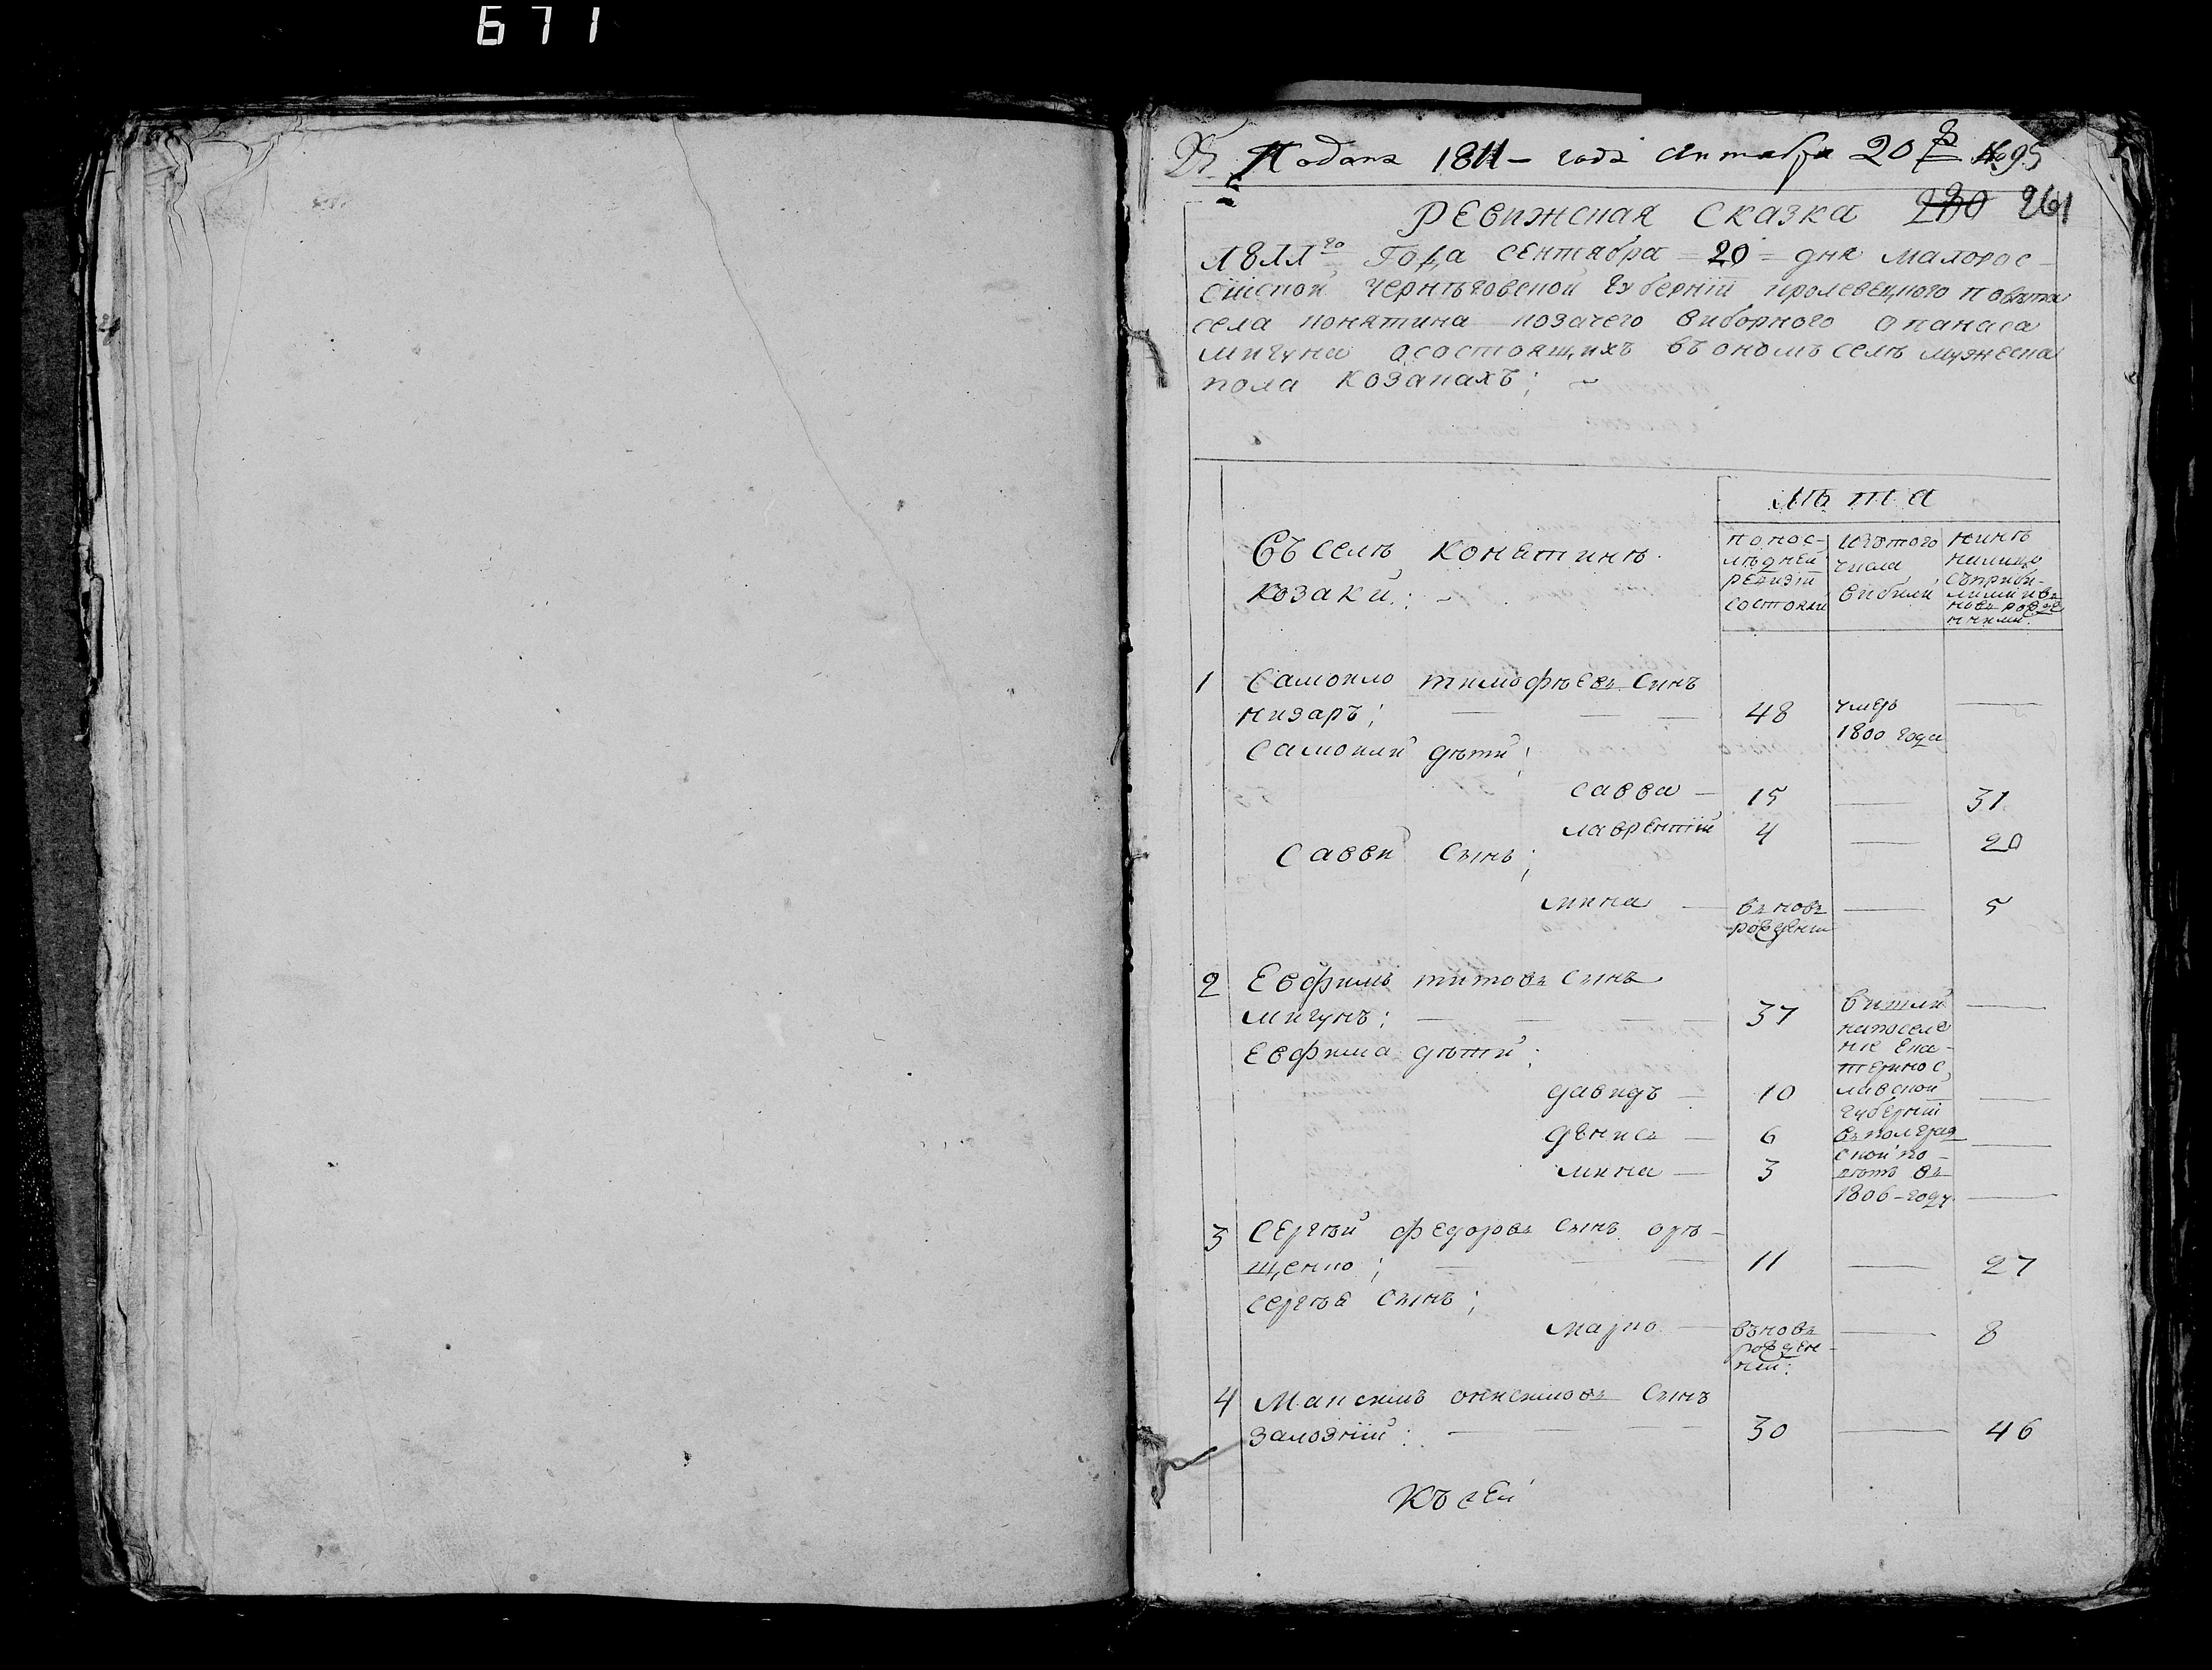 671
Подана 1811 – года сентября 20 № 95
280 261
Ревижская сказка
1811го года сентября – 20 = дня малорос-
сийской черныговской губернии кролевецкого повета
села конятина козачего виборного опанаса
мигуна осостоящихъ въ ономъ селъ мужеска
пола козакахъ;
Лѣта
Въ селѣ конятинѣ
козаки:
попос-
лѣдней
ревизіи
состояли
изтого
числа
вибили
нинѣ
налицо
съприби-
лими ивъ
новъ рожде
нними
1 Самоило тимофѣевъ синъ
низаръ; 48 умеръ —
1800 года
Самоили дѣти;
савва — 15 — 31
лаврентій 4 — 20
Савви сынъ;
мина — въ новъ — 5
рожденій
2 Евфимъ титовъ сынъ
мигунъ: 37 вишли —
напоселе
ніе ека-
теринос
лавской
губерніи
въ 1806-году
Евфима дѣти:
давидъ — 10 —
денисъ — 6 —
мина — 3 —
3 Сергѣй федоровъ сынъ орѣ-
щенко; 11 — 27
сергѣя сынъ;
марко — въновъ — 8
рожден-
ній:
4 Максимъ онисимовъ сынъ
залозній: 30 — 46
Къ сей